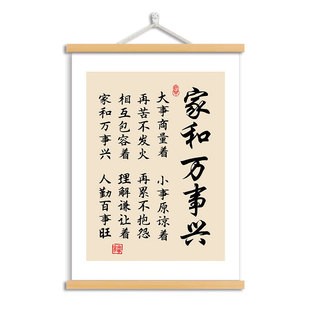 家和万事兴
大事商量着 小事原谅着
再苦不发火 再累不抱怨
相互包容着 理解谦让着
家和万事兴 人勤百事旺